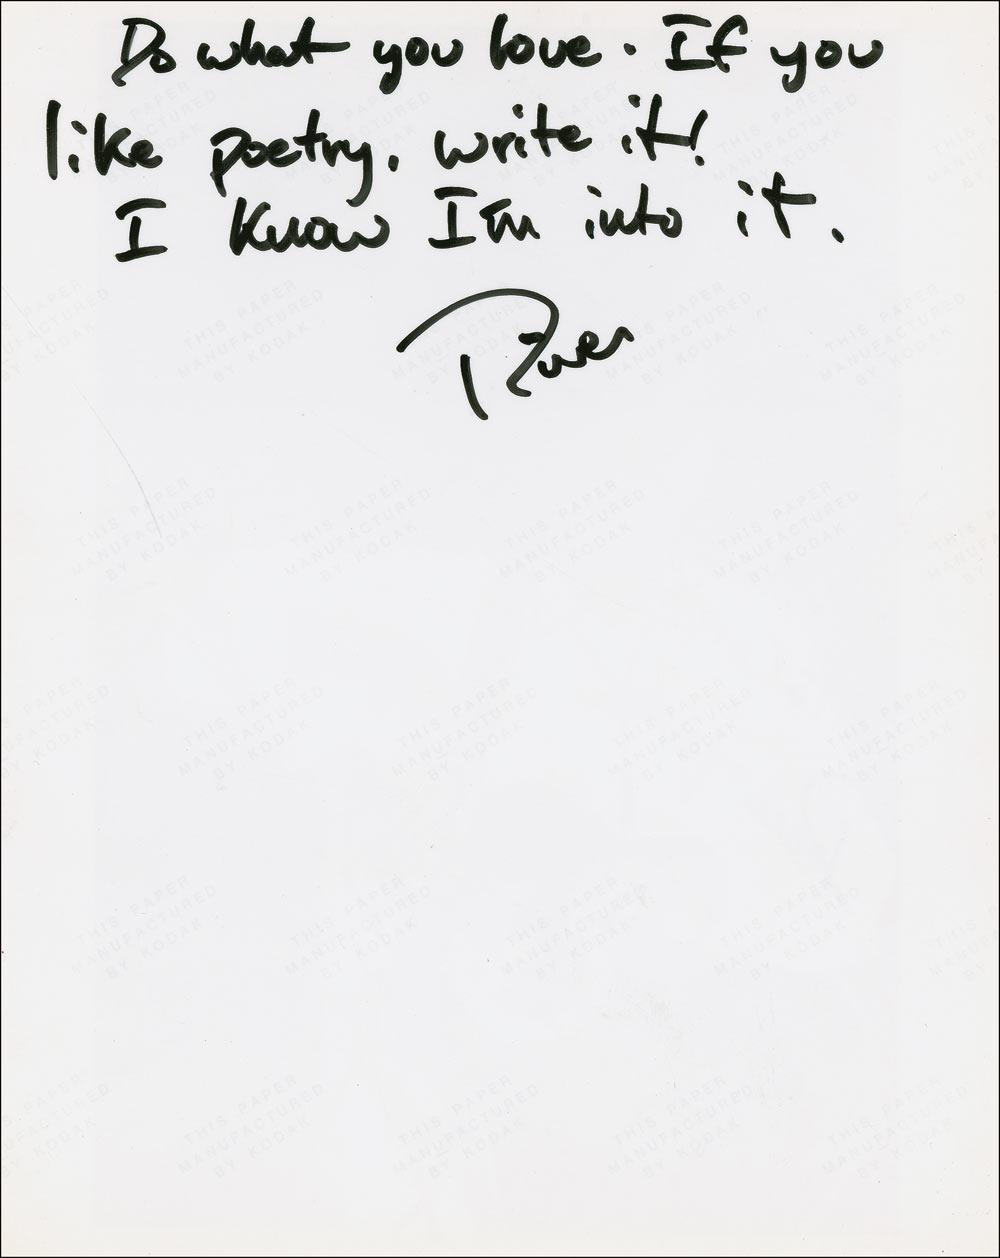 Do what you love. If you
like poetry. write it!
I know I'm into it.
River
THIS PAPER
MANUFACTURED
BY KODAK